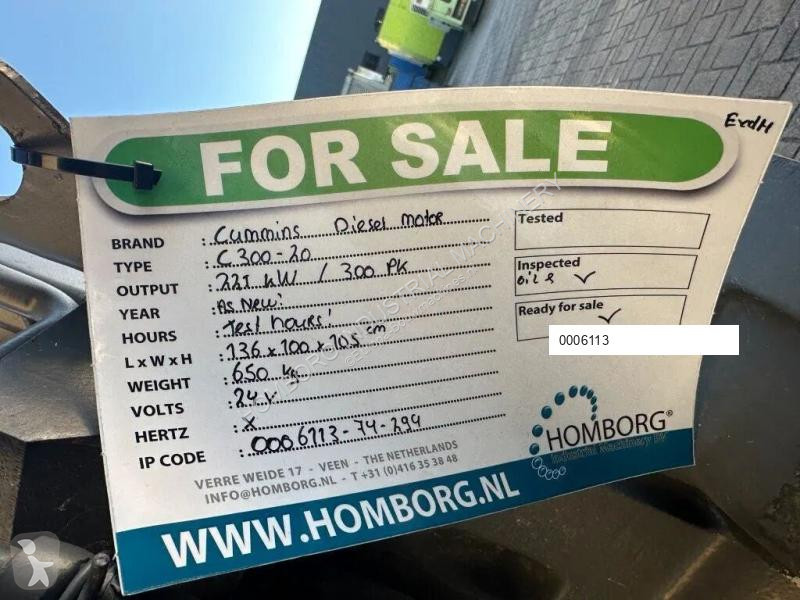 FOR SALE
ErdH
BRAND : Cummins Diesel motor
TYPE : C300-20
OUTPUT : 221 kW / 300 PK
YEAR : As New!
HOURS : Test hours!
L x W x H : 136 x 100 x 105 cm
WEIGHT : 650 kg
VOLTS : 24 V
HERTZ : X
IP CODE : 0006113-74-294
Tested
Inspected
oil & ✓
Ready for sale
✓
0006113
HOMBORG®
Industrial Machinery BV
VERRE WEIDE 17 - VEEN - THE NETHERLANDS
INFO@HOMBORG.NL - T +31 (0)416 35 38 48
WWW.HOMBORG.NL